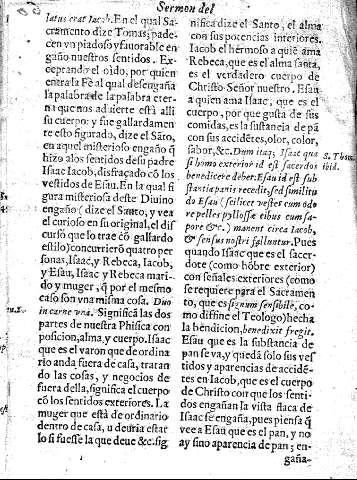 Sermon del
latus erat Iacob. En el qual Sa-
cramento dize Tomas; pade-
cen vn piadoso y fauorable en
gaño nuestros sentidos. Ex-
ceptando el oido, por quien
entra la Fè al qual desengaña
la palabra de la palabra eter-
na que nos aduierte està alli
su cuerpo: y fue gallardamen
te esto figurado, dize el Sãto,
en aquel misterioso engaño q̃
hizo a los sentidos de su padre
Isaac Iacob, disfraçado cõ los
vestidos de Esau. En la qual si
gura misteriosa deste Diuino
engaño (dize el Santo, y vea
el curioso en su original, el dis
curso que lo trae cõ gallardo
estilo) concurrierõ quatro per
sonas, Isaac, y Rebeca, Iacob,
y Esau, Isaac y Rebeca mari-
do y muger, q̃ por el mesmo
caso son vna misma cosa. Duo
in carne vna. Significã las dos
partes de nuestra Phisica com
posicion, alma, y cuerpo. Isaac
que es el varon que de ordina
rio anda fuera de casa, tratan
do las cosas, y negocios de
fuera della, significa el cuerpo
cõ los sentidos exteriores. La
muger que està de ordinario
dentro de casa, u deuria estar
lo si fuesse la que deue &c. sig
nifica dize el Santo, el alma
con sus potencias interiores.
Iacob el hermoso a quiẽ ama
Rebeca, que es el alma santa,
es el verdadero cuerpo de
Christo Señor nuestro. Esau
a quien ama Isaac, que es el
cuerpo, por que gusta de sus
comidas, es la sustancia de pã
con sus accidẽtes, olor, color,
sabor, &c. Dum itaq; Isaac qua
si homo exterior id est sacerdos
benedicere deber: Esau id est sub
stantia panis recedit, sed similitu
do Esau (scilicet vester cum odo
re pelles pyllosæ cibus cum sa-
pore &c.) manent circa Iacob,
& sensus nostri falluntur. Pues
quando Isaac que es el sacer-
dote (como hõbre exterior)
con señales exteriores (como
se requiere para el Sacramen
to, que es signum sensibile, co-
mo diffine el Teologo) hecha
la bendicion, benedixit fregit.
Esau que es la substancia de
pan se va, y quedã solo sus ves
tidos y aparencias de accidẽ-
tes en Iacob, que es el cuerpo
de Christo con que los senti-
dos engañan la vista flaca de
Isaac se engaña, pues piensa q̃
vee a Esaù que es el pan, y no
ay sino aparencia de pan; en-
gaña-
S. Thom.
ibid.